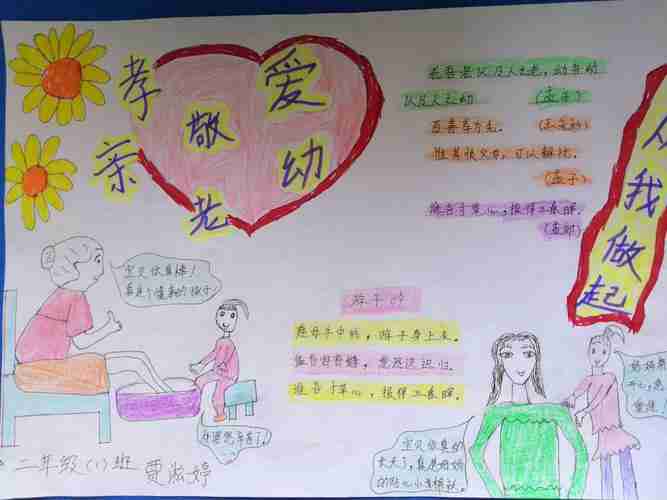 孝
亲
敬
老
爱
幼
老吾老以及人之老，幼吾幼
以及人之幼 （孟子）
百善孝为先。
惟孝顺父母，可以解忧。
（孟子）
谁言寸草心，报得三春晖。
（孟郊）
从
我
做
起
宝贝你真棒！
真是个懂事的孩子。
游子吟
慈母手中线，游子身上衣。
临行密密缝，意恐迟迟归。
谁言寸草心，报得三春晖。
宝贝你真的
太大了，真是妈妈
的贴心小棉袄。
二年级（1）班